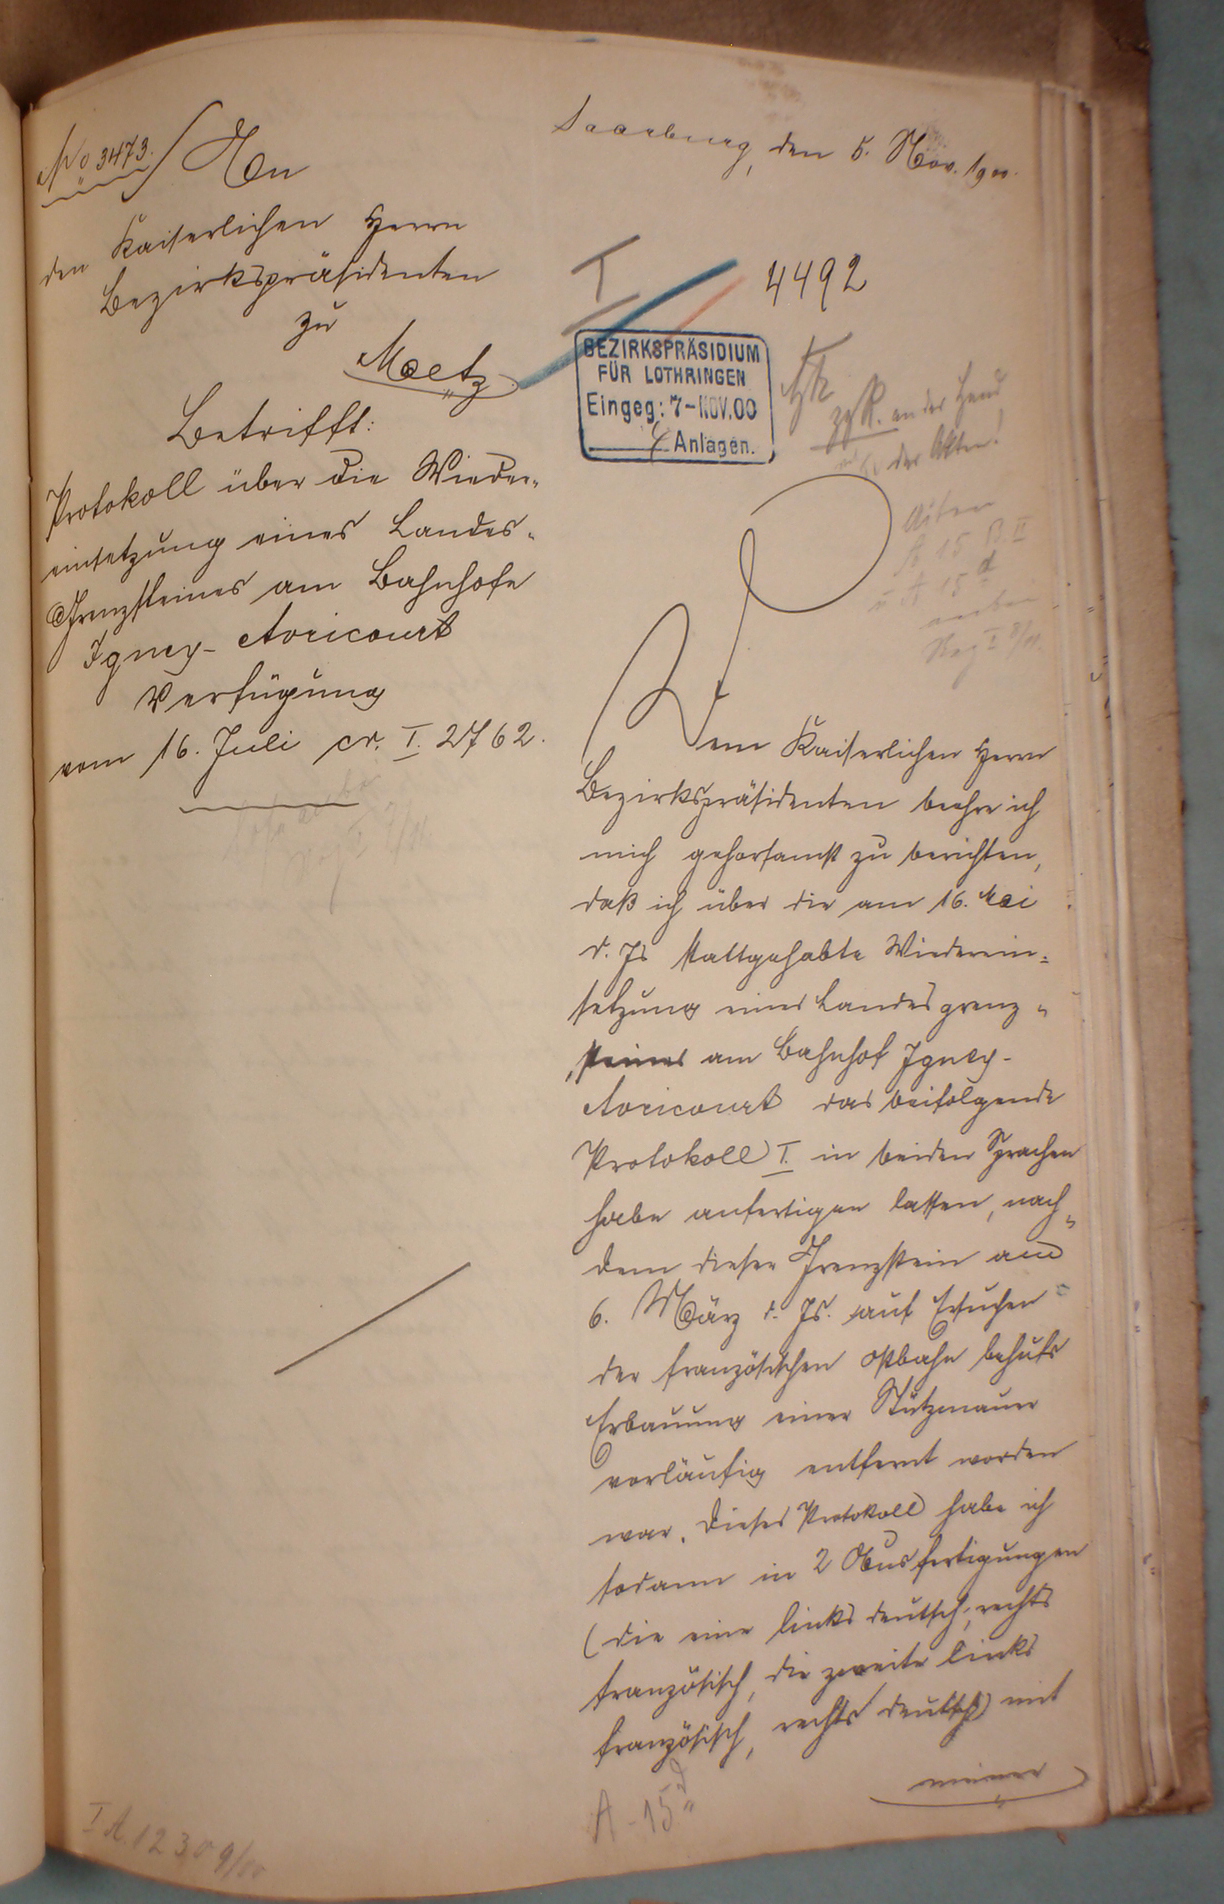 No 3473.
An
den Kaiserlichen Herrn
Bezirkspräsidenten
zu
Metz.
Betrifft:
Protokoll über die Wieder-
einsetzung eines Landes-
Grenzsteines am Bahnhofe
Igney-Avricourt
Verfügung
vom 16. Juli cr. I. 2762.
Saarburg, den 5. Nov. 1900.
I
4492
BEZIRKSPRÄSIDIUM
FÜR LOTHRINGEN
Eingeg: 7-NOV.00
Anlagen.
an der Hand
der Akten!
A 15 B. II
u A 15 d
Dem Kaiserlichen Herrn
Bezirkspräsidenten beehre ich
mich gehorsamst zu berichten,
daß ich über die am 16. Mai
d. Js stattgehabte Wiederein-
setzung eines Landesgrenz-
steines am Bahnhof Igney-
Avricourt das beifolgende
Protokoll I. in beiden Sprachen
habe anfertigen lassen, nach-
dem dieser Grenzstein am
6. März d. Js. auf Ersuchen
der französischen Ostbahn behufs
Erbauung einer Stützmauer
vorläufig entfernt worden
war. Dieses Protokoll habe ich
sodann in 2 Ausfertigungen
(die eine links deutsch, rechts
französisch, die zweite links
französisch, rechts deutsch) mit
meiner
A-15 d
I A. 12309/00